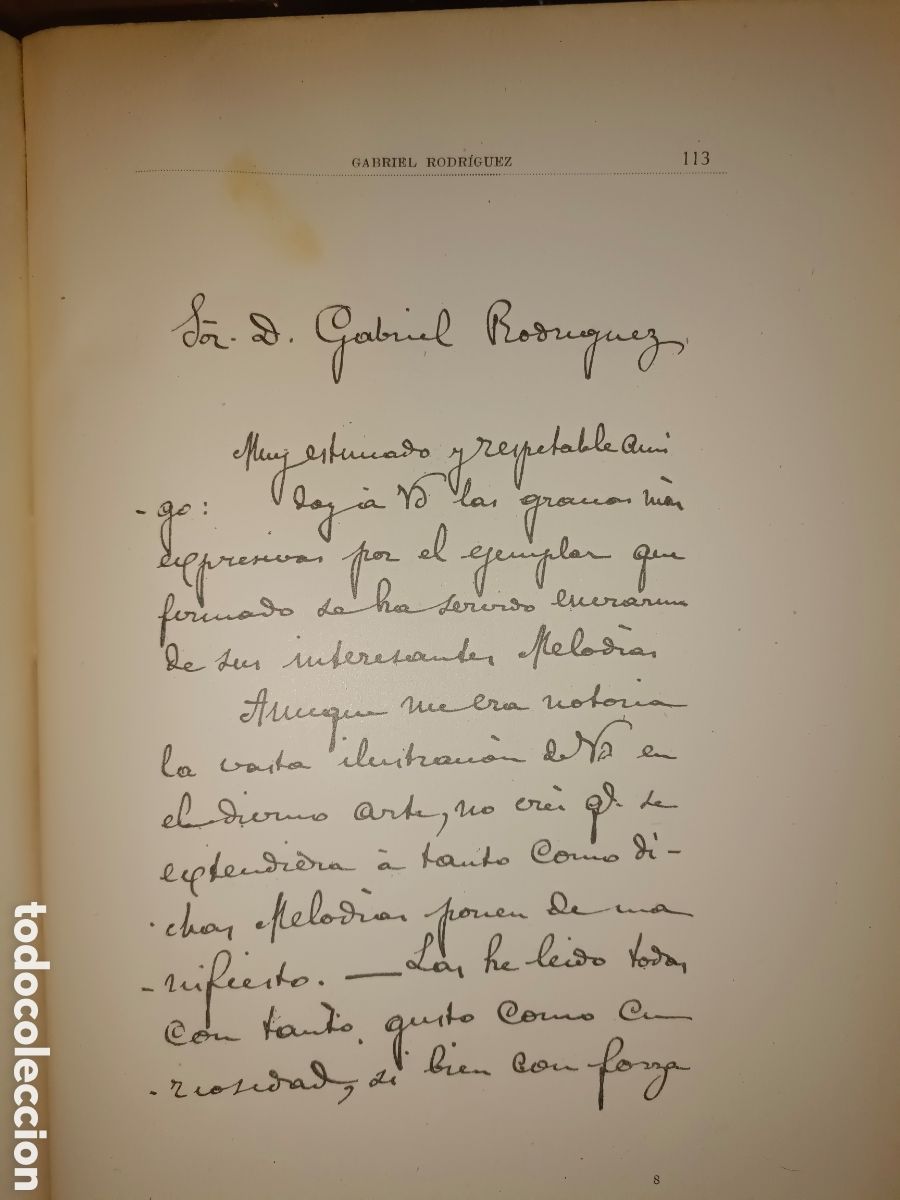 GABRIEL RODRÍGUEZ 113
Sōr. D. Gabriel Rodriguez
Muy estimado y respetable ami
-go: doy à Vd las gracias màs
expresivas por el ejemplar que
firmado se ha servido enviarme
de sus interesantes Melodìas
Aunque me era notoria
la vasta ilustraciòn de Vd en
el divino arte, no creì qe. se
extendièra à tanto como di-
chas Melodìas ponen de ma
-nifiesto. — Las he leido todas
con tanto gusto como cu
-riosidad, si bien con forza
8
todocoleccion